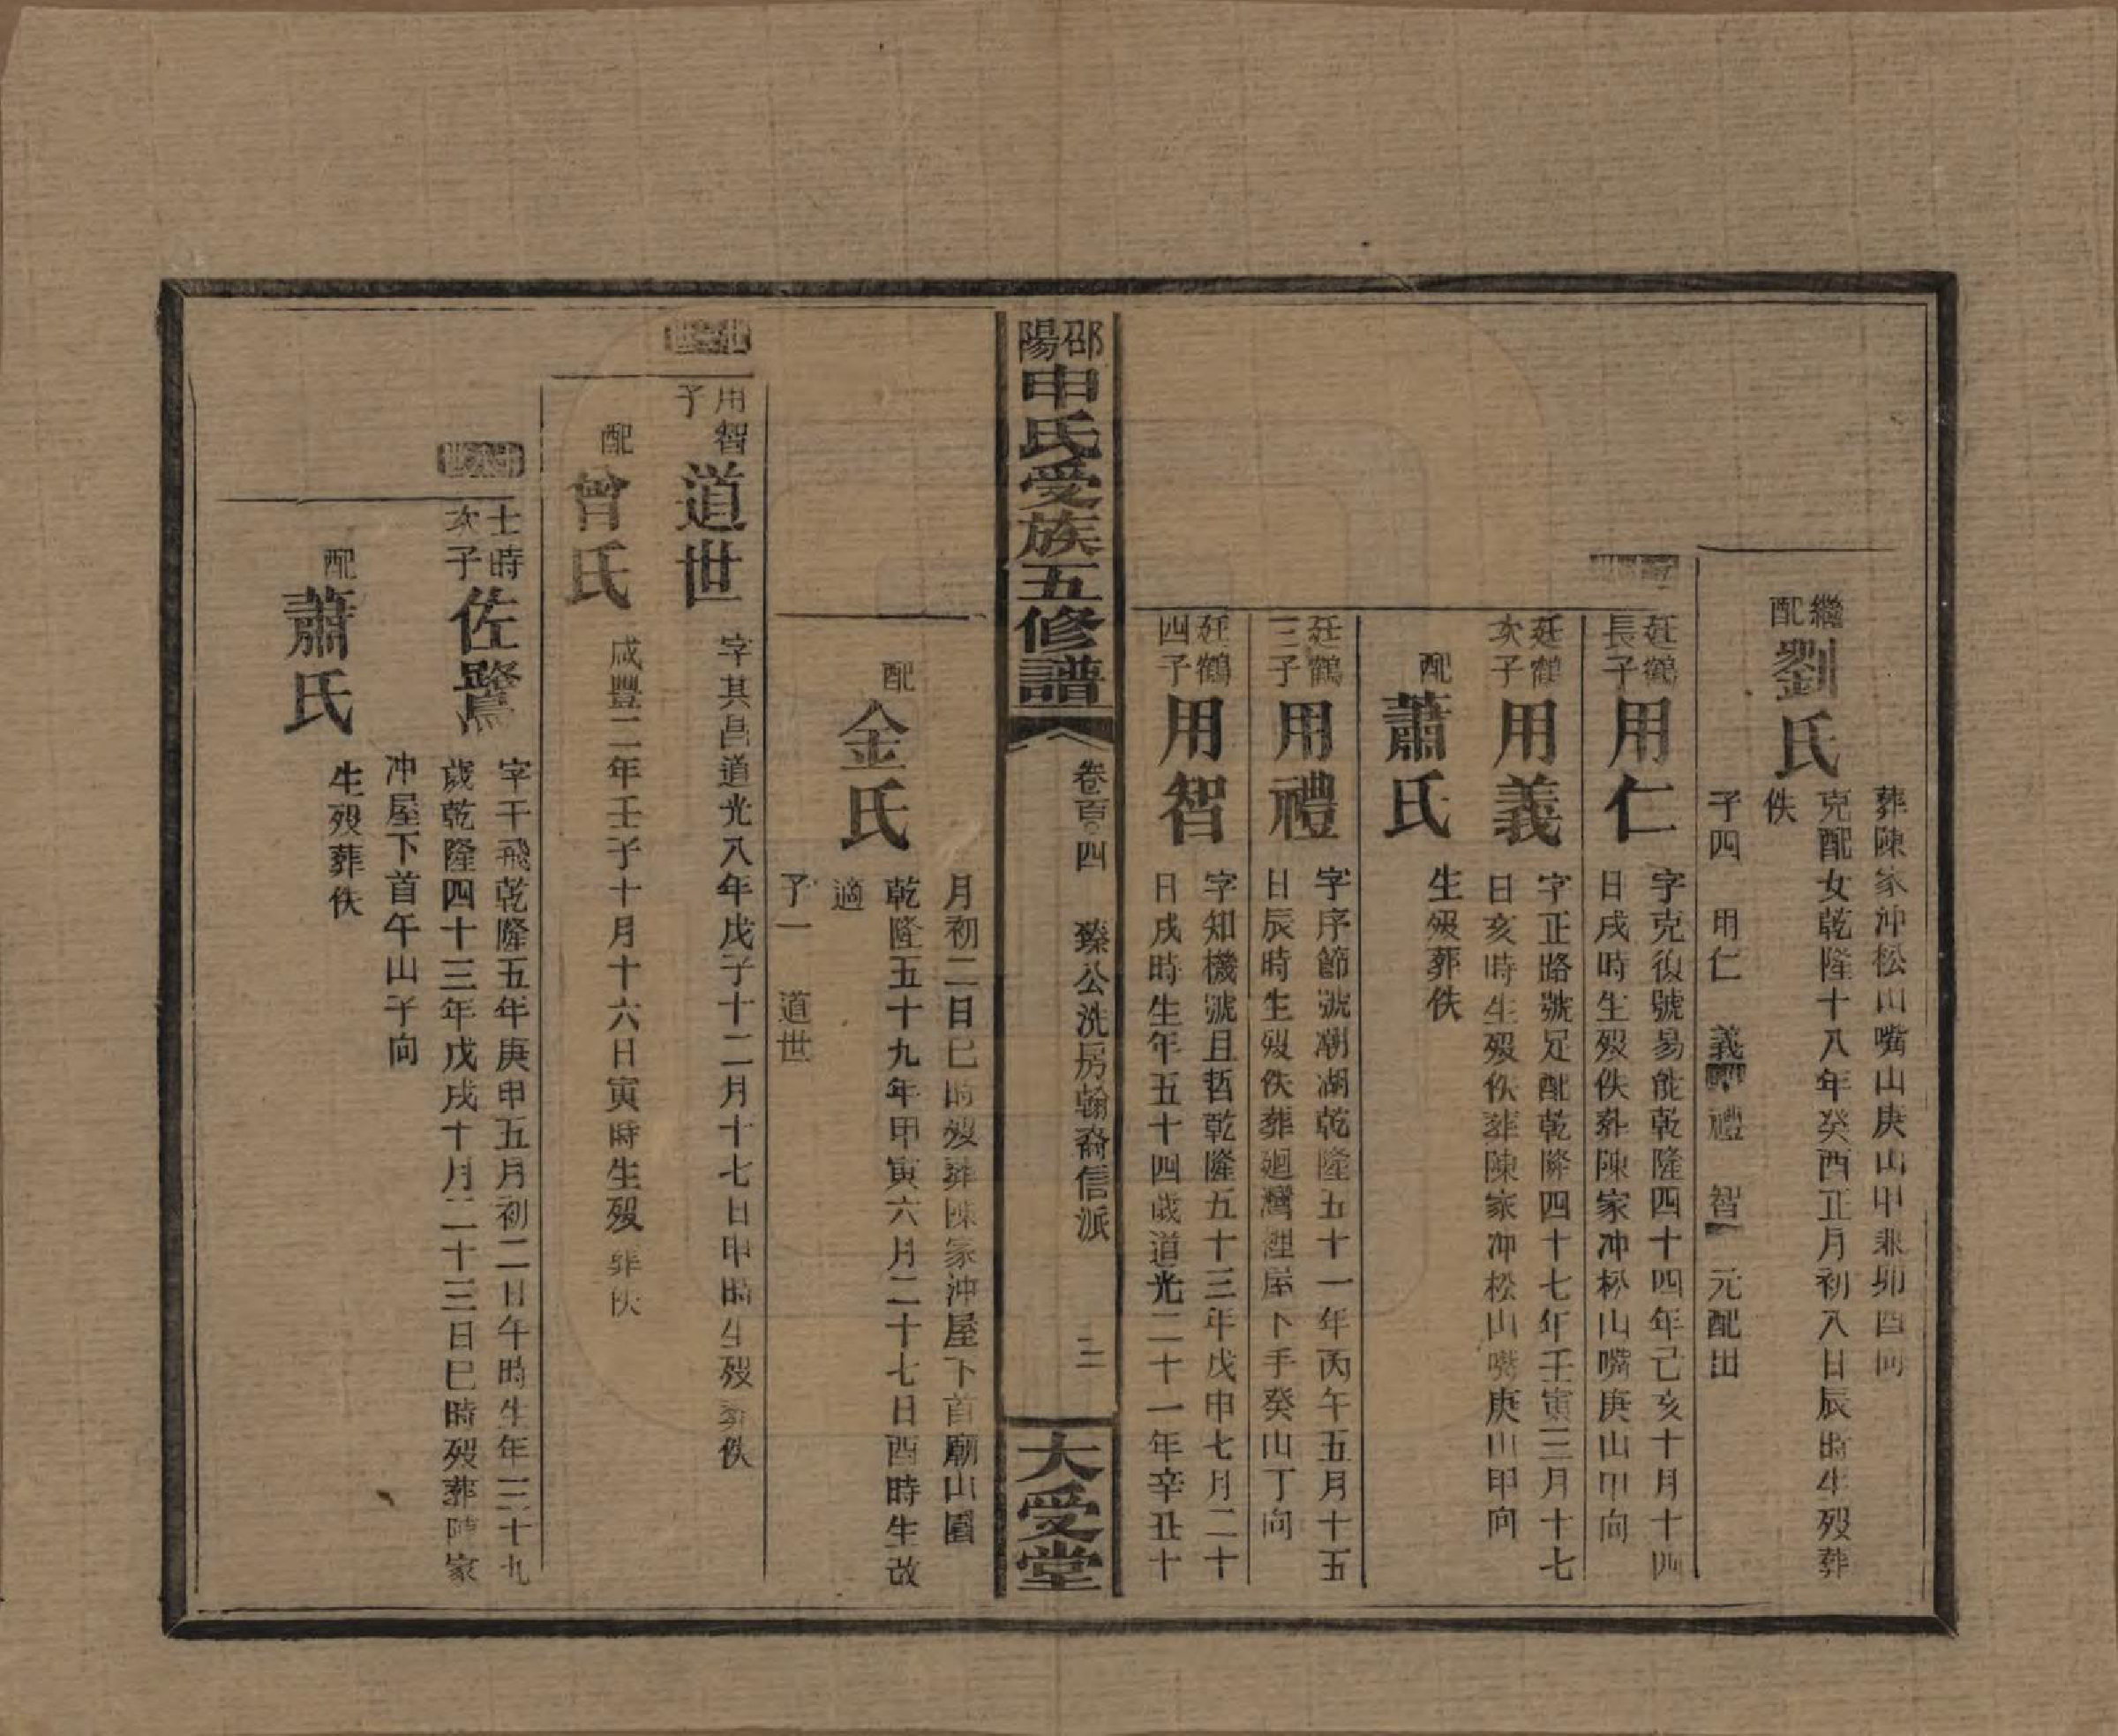 葬陳家冲松山嘴山庚山甲兼卯酉向
繼配劉氏
克配女乾隆十八年癸酉正月初八日辰時生歿葬
佚
子四 用仁 義 禮 智 元配出
廷鶴長子用仁
字克復號易能乾隆四十四年己亥十月十四
日戌時生歿佚葬陳家冲松山嘴庚山甲向
廷鶴次子用義
字正路號足配乾隆四十七年壬寅三月十七
日亥時生歿佚葬陳家冲松山嘴庚山甲向
配蕭氏
生歿葬佚
廷鶴三子用禮
字序節號潮湖乾隆五十一年丙午五月十五
日辰時生歿佚葬廻灣裡屋下手癸山丁向
廷鶴四子用智
字知機號且哲乾隆五十三年戊申七月二十
日戌時生年五十四歲道光二十一年辛丑十
邵陽申氏受族五修譜
卷百〇四 臻公洗房翰裔信派
二
大受堂
月初二日巳時歿葬陳家沖屋下首廟山園
配金氏
乾隆五十九年甲寅六月二十七日酉時生改
適
子一 道世
用智子道世
字其昌道光八年戊子十二月十七日申時生歿葬佚
配曾氏
咸豐二年壬子十月十六日寅時生歿葬佚
士時次子佐鷺
字干飛乾隆五年庚申五月初二日午時生年三十九
歲乾隆四十三年戊戌十月二十三日巳時歿葬陳家
冲屋下首午山子向
配蕭氏
生歿葬佚